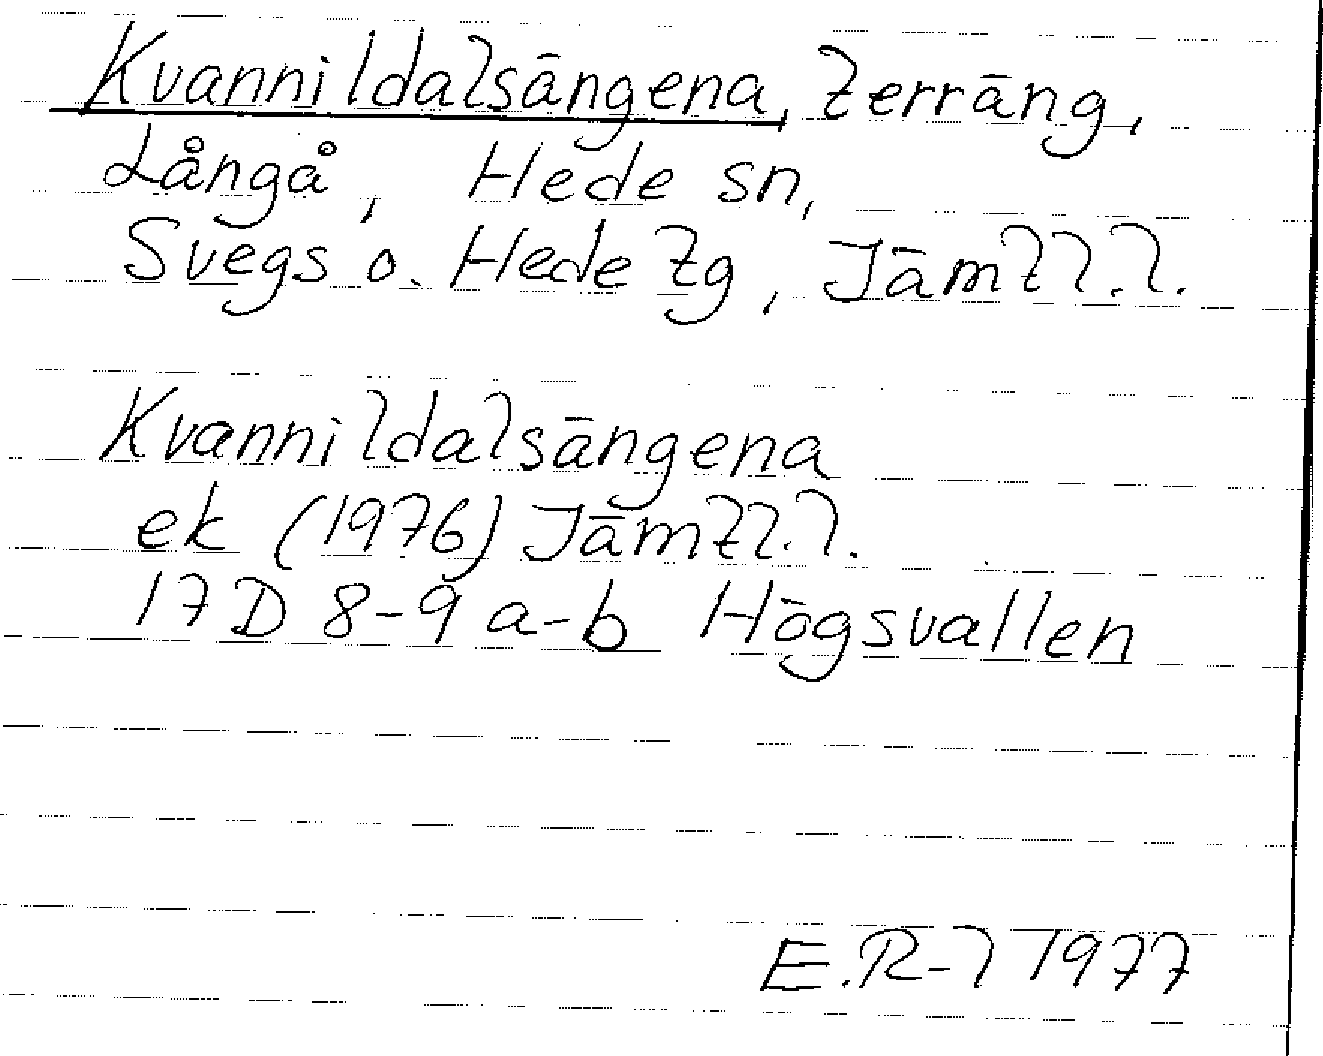 Kvannildalsängena, terräng,
Långå, Hede sn,
Svegs o. Hede tg, Jämtl.l.
Kvannildalsängena
ek (1976) Jämtl.l.
17D 8-9 a-b Högsvallen
E.R-l 1977